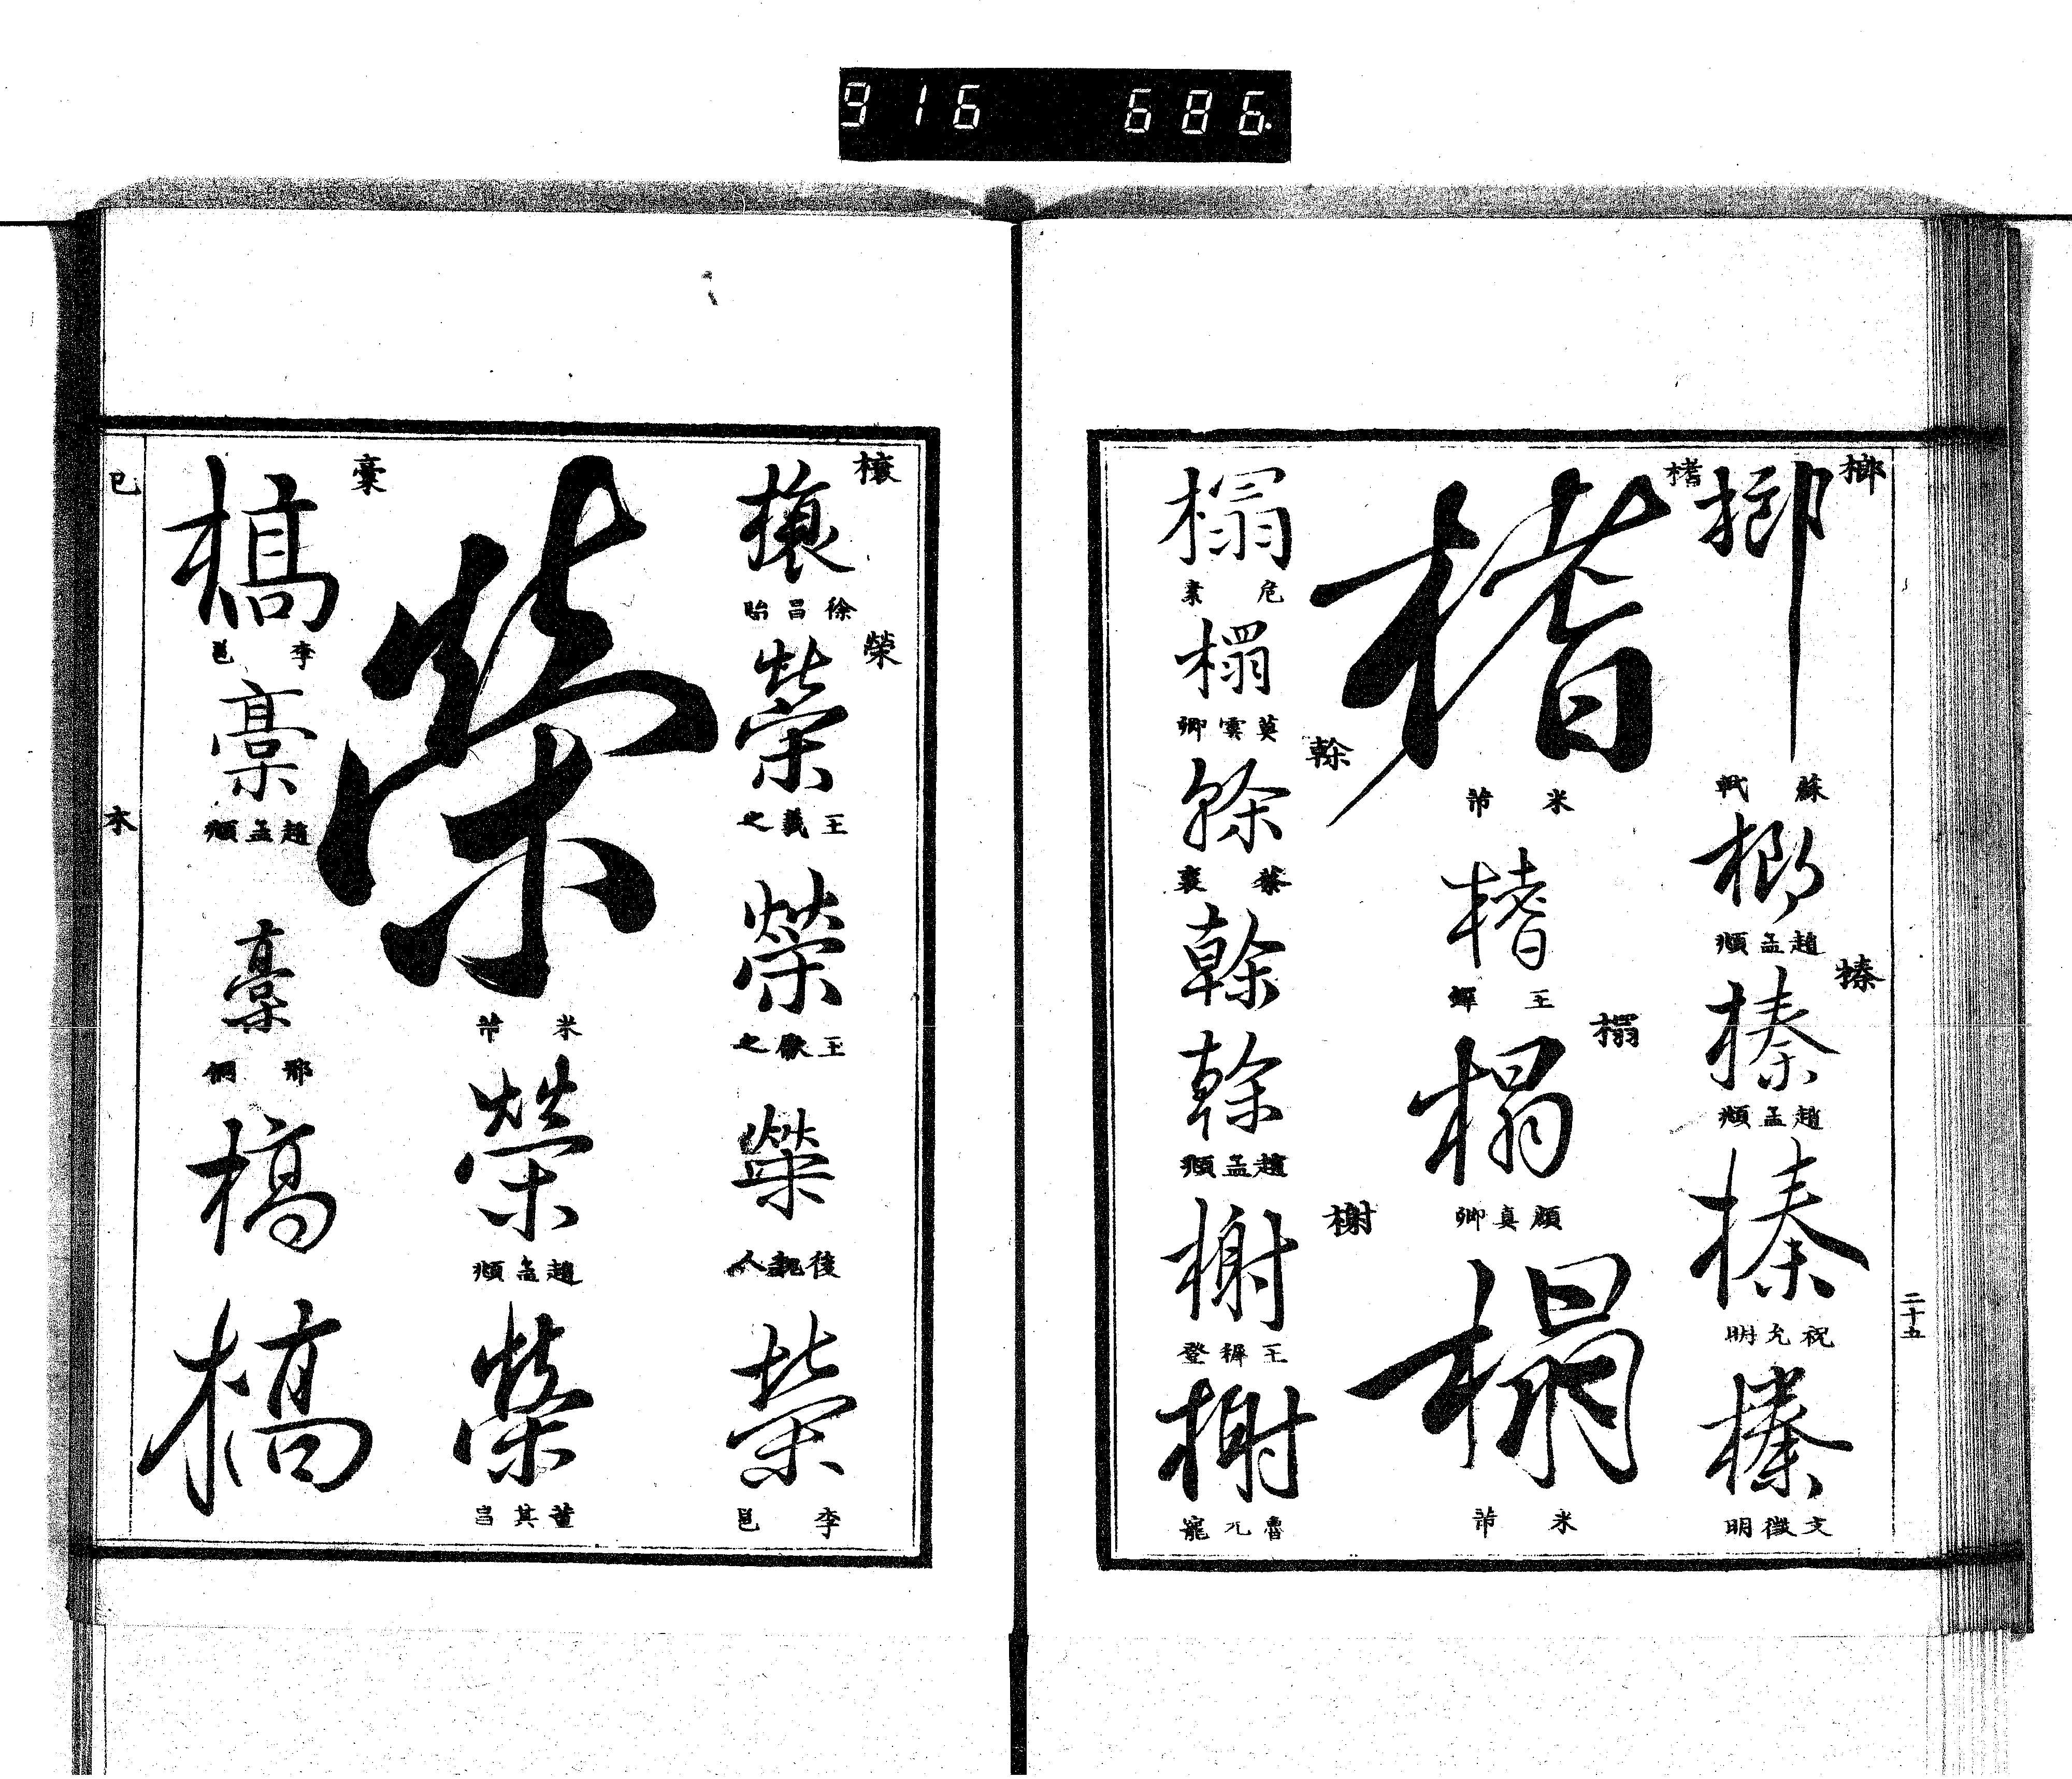 916 686.
榔
榔
蘇軾
榔
趙孟頫
榛
榛
趙孟頫
榛
祝允明
榛
文徵明
二十五
榰
榰
米芾
榰
王鐸
榻
榻
顏真卿
榻
米芾
榻
危素
榻
莫雲卿
榦
蔡襄
榦
榦
趙孟頫
榭
榭
王穉登
榭
魯元寵
榱
徐昌
榮
榮
王羲之
榮
王獻之
榮
後魏人
榮
李邕
榮
米芾
榮
趙孟頫
榮
董其昌
槀
槁
李邕
槀
趙孟頫
槀
邢侗
槁
槁
巳
木